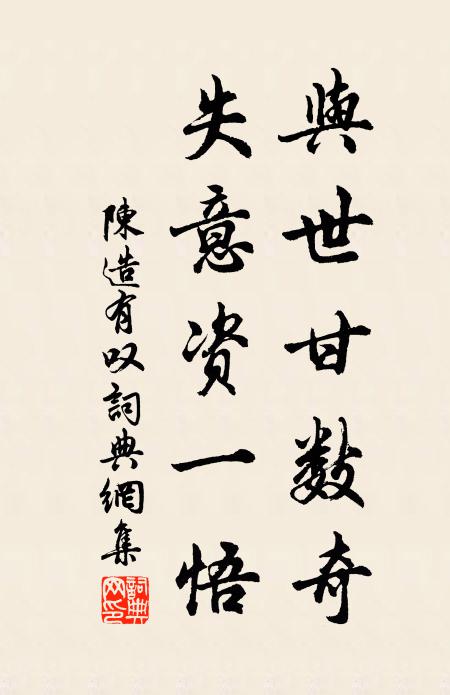 與世甘數奇
失意資一悟
陳造有叹詞典網集
詞典網印